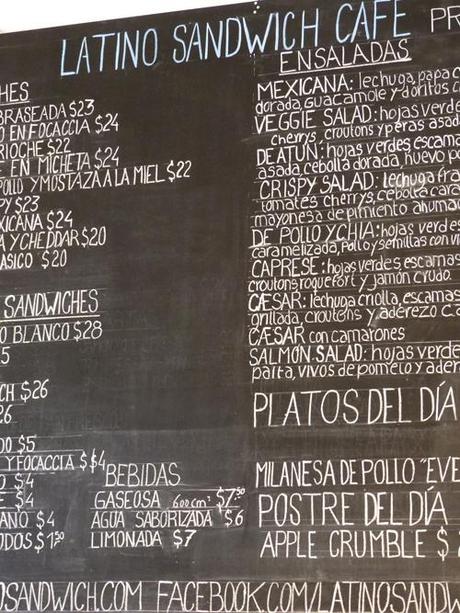 LATINO SANDWICH CAFÉ PR
HES
BRASEADA $23
O EN FOCACCIA $24
RIOCHE $22
E EN MICHETA $24
POLLO Y MOSTAZA A LA MIEL $22
PY $23
XICANA $24
A Y CHEDDAR $20
ASICO $20
SANDWICHES
O BLANCO $28
5
CH $26
26
DO $5
Y FOCACCIA $4
O $4
E $4
ANO $4
DOS $1.50
BEBIDAS
GASEOSA 600 cm³ $7.50
AGUA SABORIZADA $6
LIMONADA $7
ENSALADAS
MEXICANA: lechuga, papa c
dorada, guacamole y doritos c
VEGGIE SALAD: hojas verdes
cherrys, croutons y peras asad
DE ATÚN: hojas verdes escama
asada, cebolla dorada, huevo po
CRISPY SALAD: lechuga fra
tomates cherrys, cebolla cara
mayonesa de pimiento ahumad
DE POLLO Y CHÍA: hojas verdes
caramelizada, pollo y semillas con vi
CAPRESE: hojas verdes, escamas
croutons, roquefort y jamón crudo.
CÆSAR: lechuga criolla, escamas
grillada, croutons y aderezo ca
CÆSAR con camarones
SALMÓN SALAD: hojas verde
palta, vivos de pomelo y ader
PLATOS DEL DÍA
MILANESA DE POLLO "EVE
POSTRE DEL DÍA
APPLE CRUMBLE $2
OSANDWICH.COM FACEBOOK.COM/LATINOSANDW